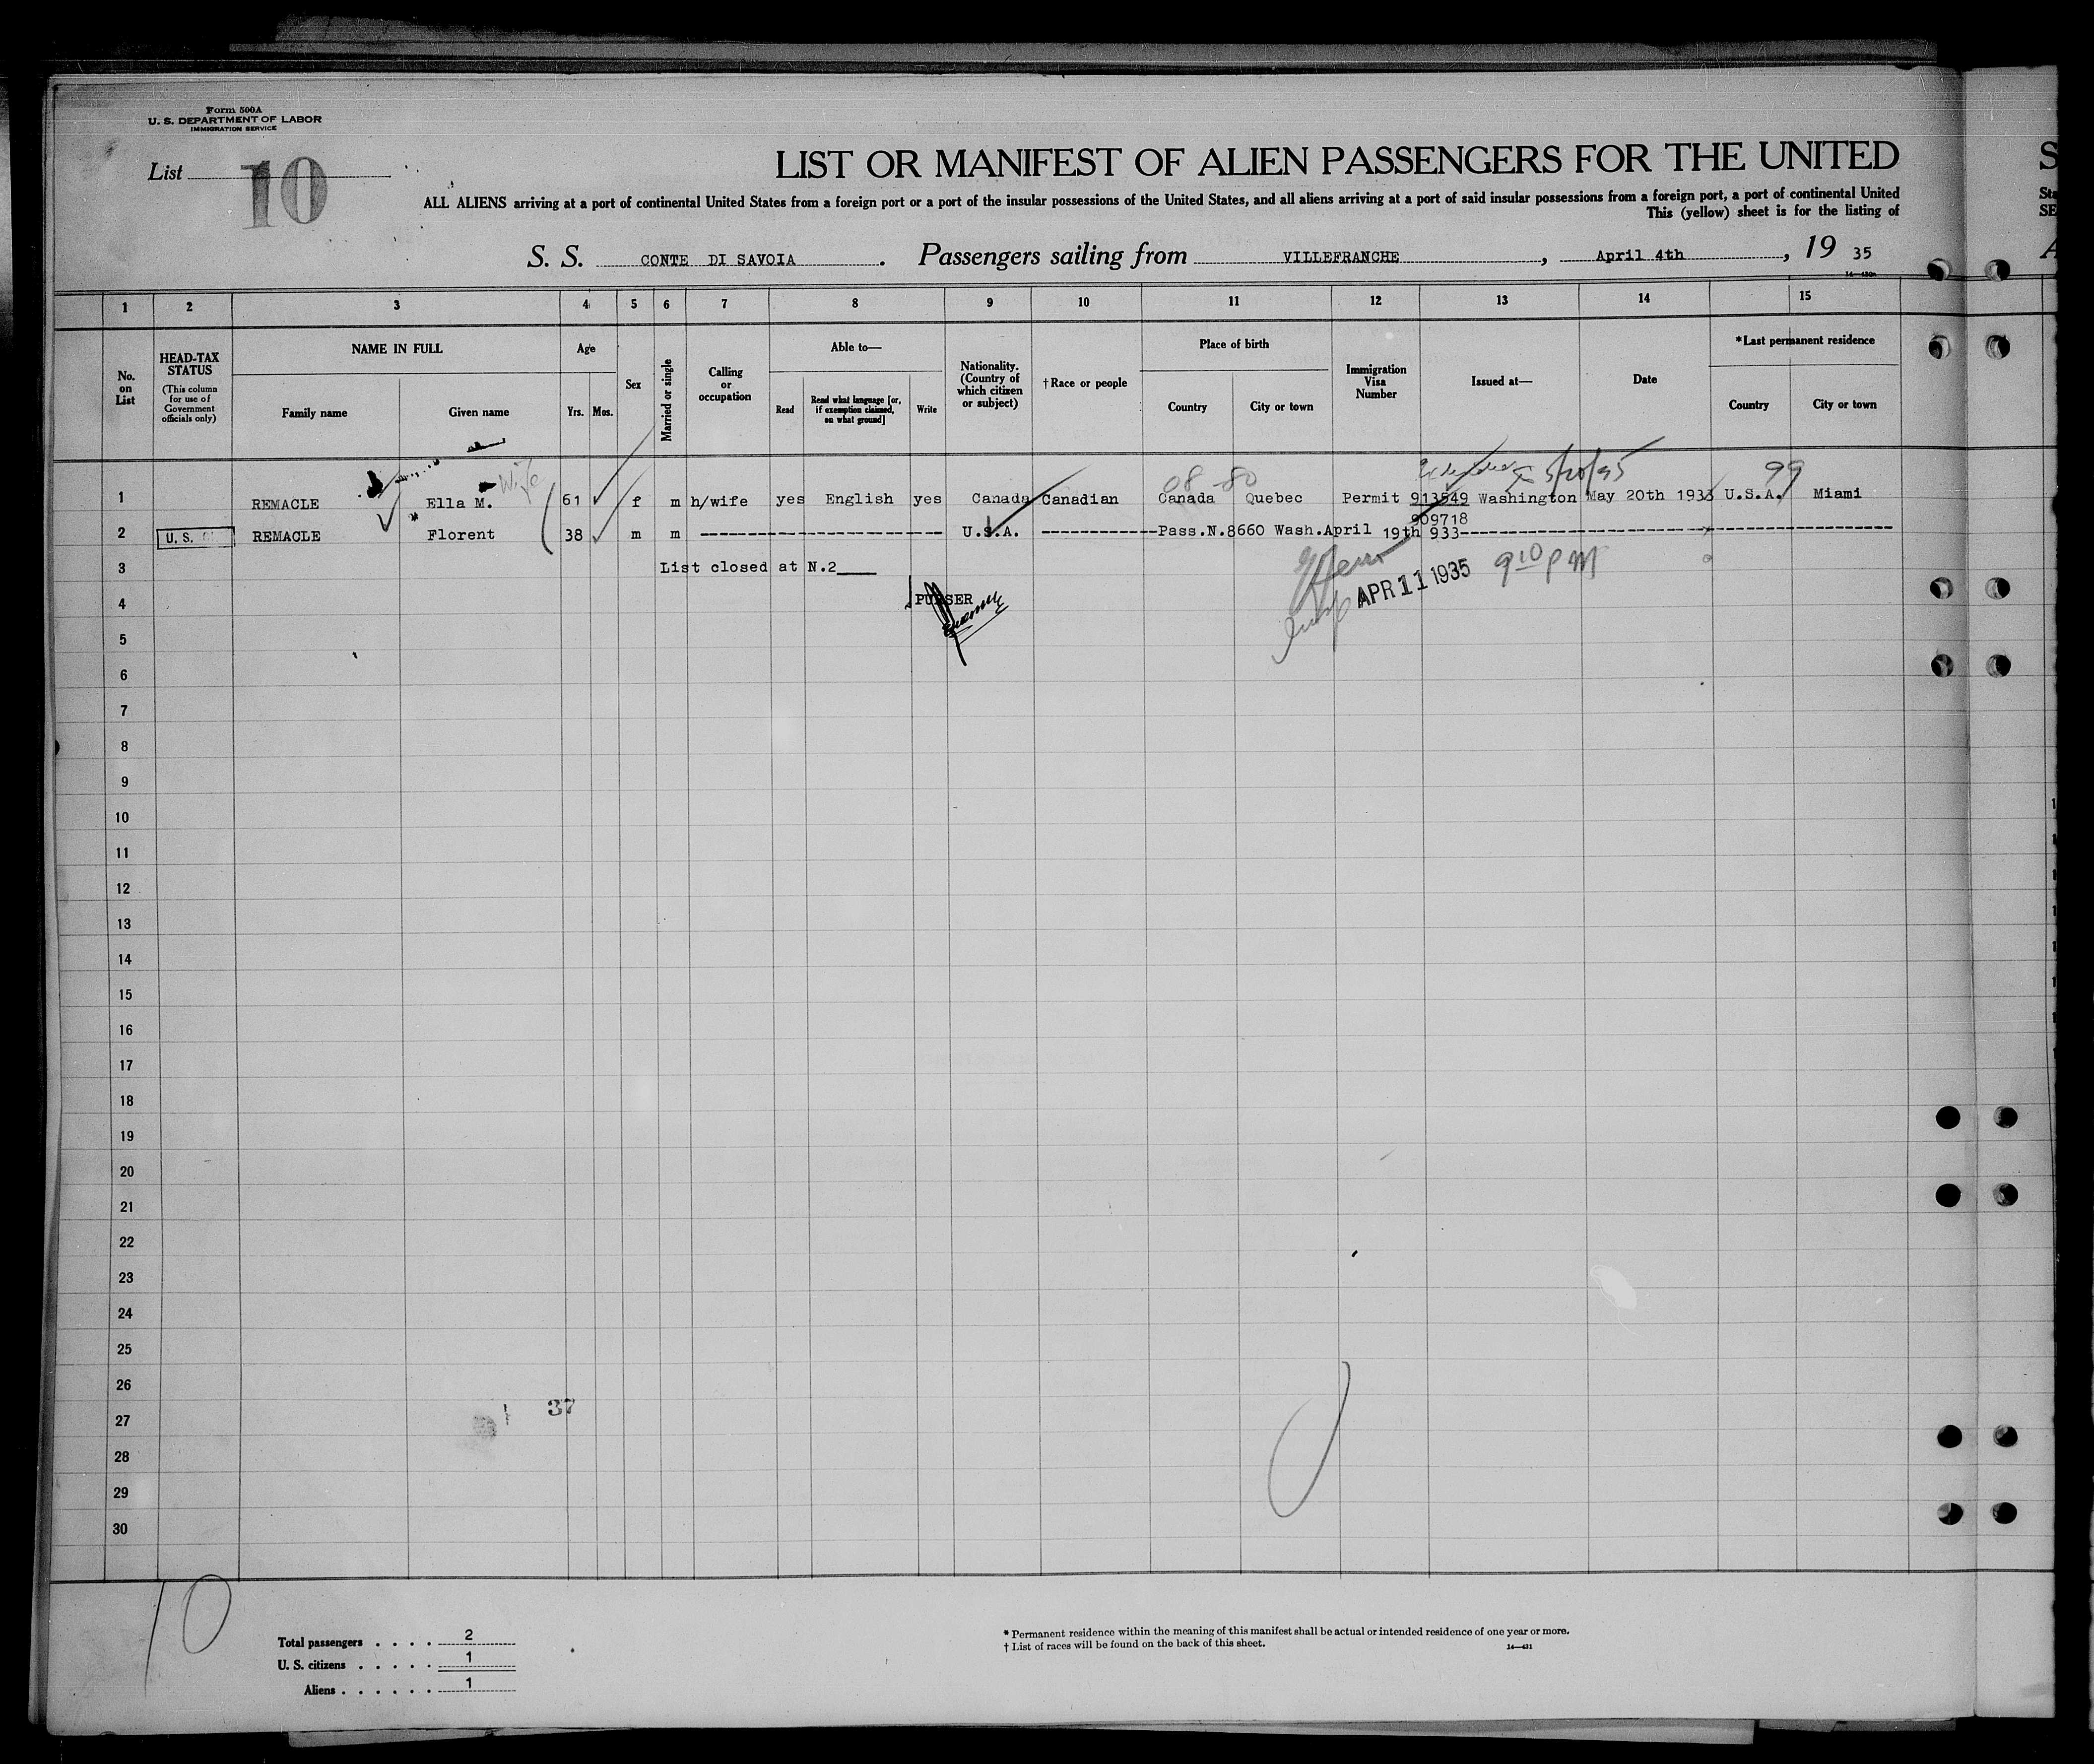 Form 500A
U. S. DEPARTMENT OF LABOR
IMMIGRATION SERVICE
List 10
LIST OR MANIFEST OF ALIEN PASSENGERS FOR THE UNITED S
ALL ALIENS arriving at a port of continental United States from a foreign port or a port of the insular possessions of the United States, and all aliens arriving at a port of said insular possessions from a foreign port, a port of continental United Sta
This (yellow) sheet is for the listing of SE
S. S. CONTE DI SAVOIA . Passengers sailing from VILLEFRANCHE , April 4th , 19 35 A
1 2 3 4 5 6 7 8 9 10 11 12 13 14 15
No. on List
HEAD-TAX STATUS
(This column for use of Government officials only)
NAME IN FULL
Family name Given name
Age
Yrs. Mos.
Sex
Married or single
Calling or occupation
Able to—
Read
Read what language [or, if exemption claimed, on what ground]
Write
Nationality. (Country of which citizen or subject)
†Race or people
Place of birth
Country City or town
Immigration Visa Number
Issued at—
Date
*Last permanent residence
Country City or town
wife 08-80 5/20/35 99
1 REMACLE Ella M. 61 f m h/wife yes English yes Canada Canadian Canada Quebec Permit 913549 Washington May 20th 1933 U.S.A. Miami
909718
2 U. S. REMACLE Florent 38 m m ------------------------ U.S.A. ------------Pass.N.8660 Wash.April 19th 933--------------------------------------------
3 List closed at N.2
APR 11 1935 9 10 PM
4 PURSER
5
6
7
8
9
10
11
12
13
14
15
16
17
18
19
20
21
22
23
24
25
26
37
27
28
29
30
10
Total passengers . . . . 2
U. S. citizens . . . . . 1
Aliens . . . . . . 1
* Permanent residence within the meaning of this manifest shall be actual or intended residence of one year or more.
† List of races will be found on the back of this sheet.
14—431